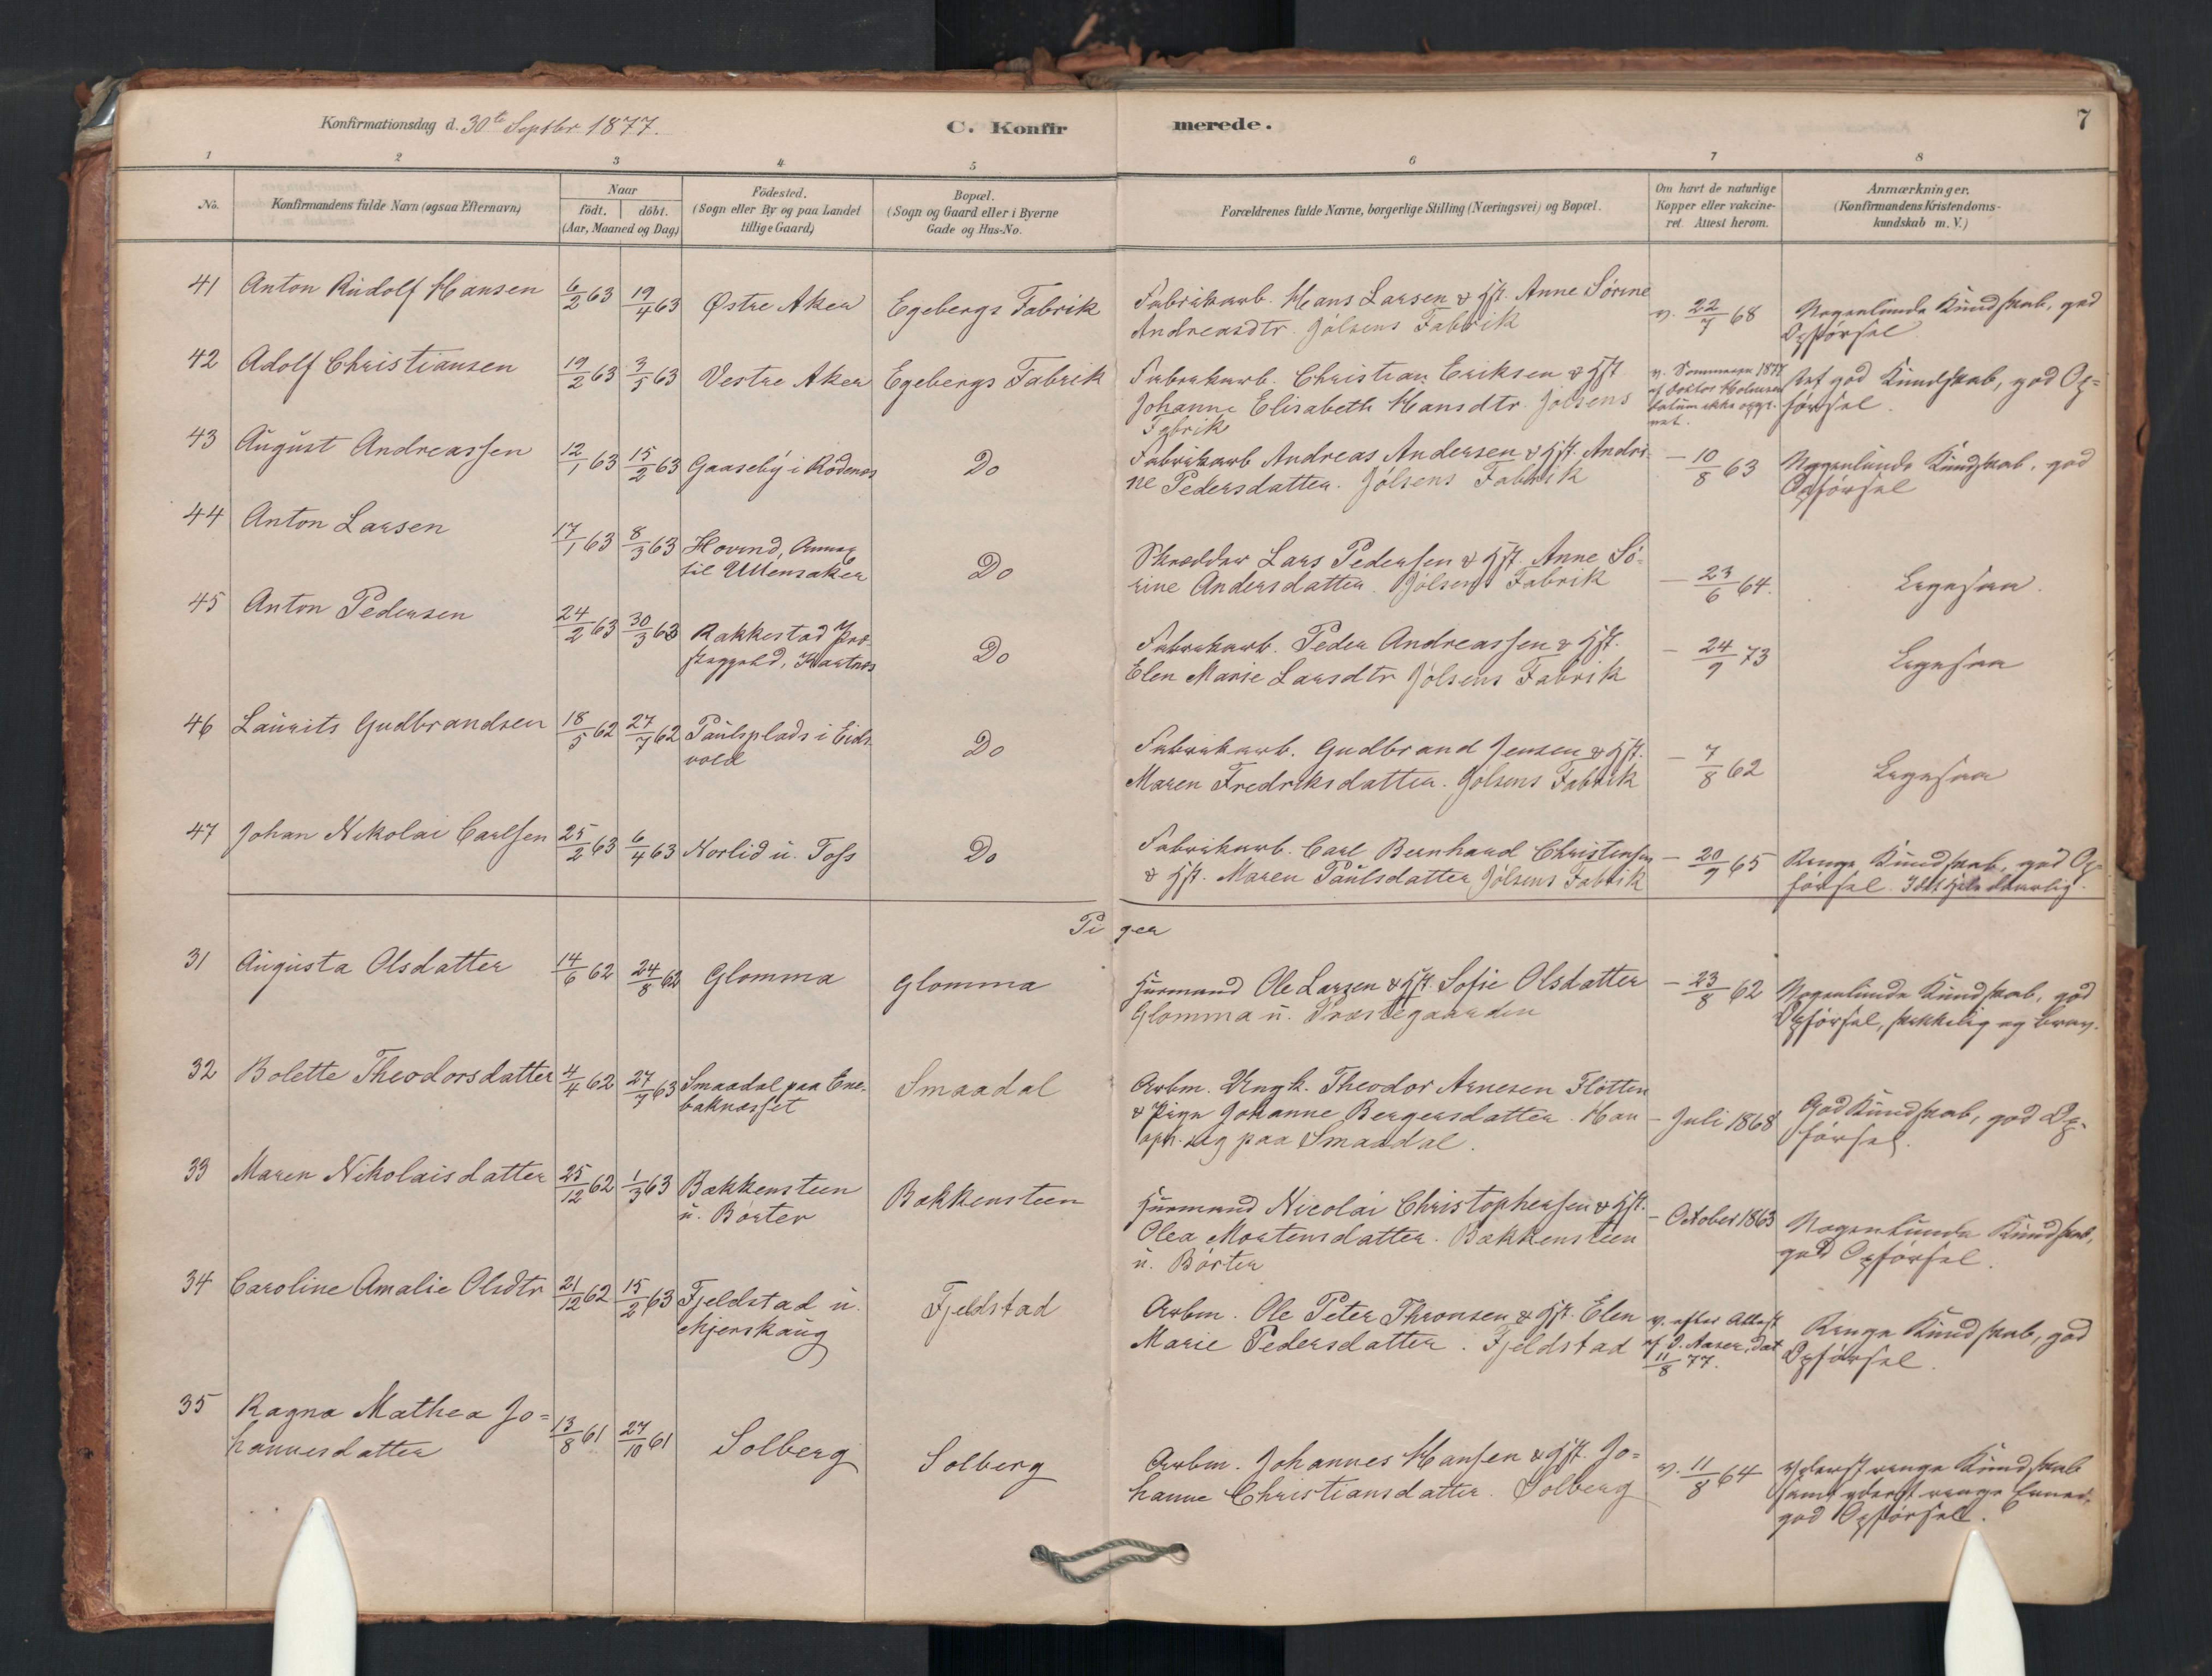 Konfirmationsdag d. 30te Septbr 1877.
C. Konfirmerede.
7
1 2 3 4 5 6 7 8
No.
Konfirmandens fulde Navn (ogsaa Efternavn)
Naar
födt. döbt.
(Aar, Maaned og Dag)
Födested.
(Sogn eller By og paa Landet
tillige Gaard)
Bopæl.
(Sogn og Gaard eller i Byerne
Gade og Hus-No.
Forældrenes fulde Navne, borgerlige Stilling (Næringsvei) og Bopæl.
Om havt de naturlige
Kopper eller vakcine-
ret. Attest herom.
Anmærkninger.
(Konfirmandens Kristendoms-
kundskab m. V.)
41 Anton Rudolf Hansen 6/2 63 19/4 63 Østre Aker Egebergs Fabrik
Fabrikarb. Hans Larsen & Hst. Anne Sørine
Andreasdtr. Jølsens Fabrik
v. 22/7 68
Nogenlunde Kundskab, god
Opførsel
42 Adolf Christiansen 19/2 63 3/5 63 Vestre Aker Egebergs Fabrik
Fabrikarb. Christian Eriksen & Hst
Johanne Elisabeth Hansdtr. Jølsens
Fabrik
v. Sommeren 1877
af Doktor Holmsen
Datum ikke opgi-
vet.
god Kundskab, god Op=
førsel.
43 August Andreassen 12/1 63 15/2 63 Gaaseby i Rødenes Do
Fabrikarb Andreas Andersen & Hst. Andri-
ne Pedersdatter. Jølsens Fabrik
- 10/8 63
Nogenlunde Kundskab, god
Opførsel
44 Anton Larsen 17/1 63 8/3 63 Hovind, Annex
til Ullensaker
Do
Skrædder Lars Pedersen & Hst. Anne Sø-
rine Andersdatter. Jølsens Fabrik
- 23/6 64.
Ligesaa.
45 Anton Pedersen 24/2 63 30/3 63 Rakkestad Præ-
stegjeld,
Do
Fabrikarb. Peder Andreassen & Hst.
Elen Marie Larsdtr Jølsens Fabrik
- 24/9 73
Ligesaa
46 Laurits Gudbrandsen 18/5 62 27/7 62 Paulsplads i Eids-
vold
Do
Fabrikarb. Gudbrand Jensen & Hst.
Maren Fredriksdatter. Jølsens Fabrik
- 7/8 62
Ligesaa
47 Johan Nikolai Carlsen 25/2 63 6/4 63 Norlid u. Toss Do
Fabrikarb. Carl Bernhard Christensen
& Hst. Maren Paulsdatter Jølsens Fabrik
- 20/9 65
Ringe Kundskab, god Op-
førsel.
Piger
31 Augusta Olsdatter 14/6 62 24/8 62 Glomma Glomma
Husmand Ole Larzen & Hst. Sofie Olsdatter
Glomma u. Præstegaarden
- 23/8 62
Nogenlunde Kundskab, god
Opførsel, skikkelig og brav.
32 Bolette Theodorsdatter 4/4 62 27/7 63 Smaadal paa Ene-
baknæsset
Smaadal
Arbm. Ungk. Theodor Arnesen Fløtten
& Pige Johanne Bergersdatter. Han
oph. sig paa Smaadal.
- Juli 1868
God Kundskab, god Op-
førsel.
33 Maren Nikolaisdatter 25/12 62 1/3 63 Bakkensteen
u. Børter
Bakkensteen
Husmand Nicolai Christophersen & Hst.
Olea Mortensdatter. Bakkensteen
u. Børter
- October 1863
Nogenlunde Kundskab,
god Opførsel.
34 Caroline Amalie Olsdtr 21/12 62 15/2 63 Fjeldstad u.
Mjerskaug
Fjeldstad
Arbm. Ole Peter Thronsen & Hst. Elen
Marie Pedersdatter. Fjeldstad
v. efter Attest
af D. Aaser, dat
11/8 77.
Ringe Kundskab, god
Opførsel.
35 Ragna Mathea Jo=
hannesdatter
13/8 61 27/10 61 Solberg Solberg
Arbm. Johannes Hansen & Hst. Jo=
hanne Christiansdatter. Solberg
v. 11/8 64
Yderst ringe Kundskab
samt yderst ringe Evner,
god Opførsel.